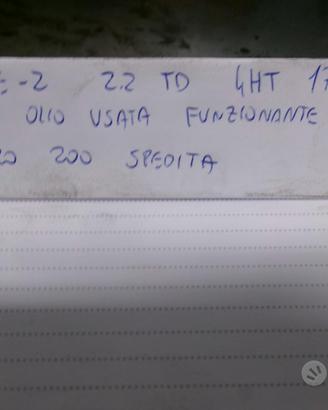 -2 2.2 TD 4HT 17
OLIO USATA FUNZIONANTE
200 SPEDITA